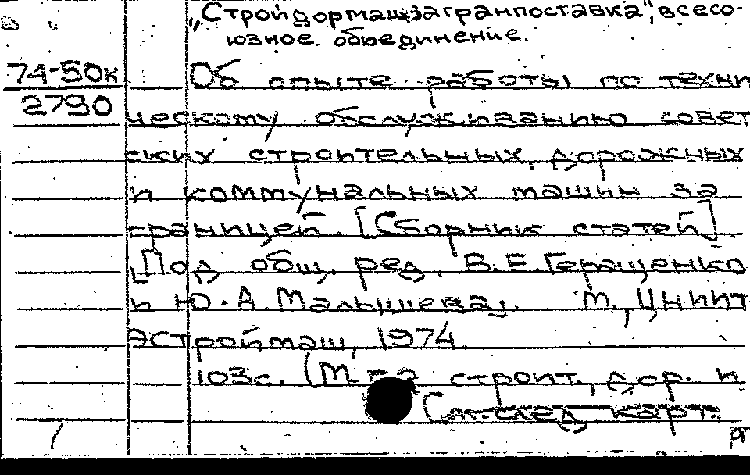 „Стройдормашзагранпоставка", всесо-
юзное объединение.
74-50к Об опыте работы по техни
2790 ческому обслуживанию совет
ских строительных, дорожных
и коммунальных машин за
границей. [Сборник статей]
[Под общ. ред. В.Е.Геращенко
и Ю.А.Малышева]. М., ЦНИИТ
ЭСтроймаш, 1974.
103с. (М-во строит., дор. и
См.след карт.